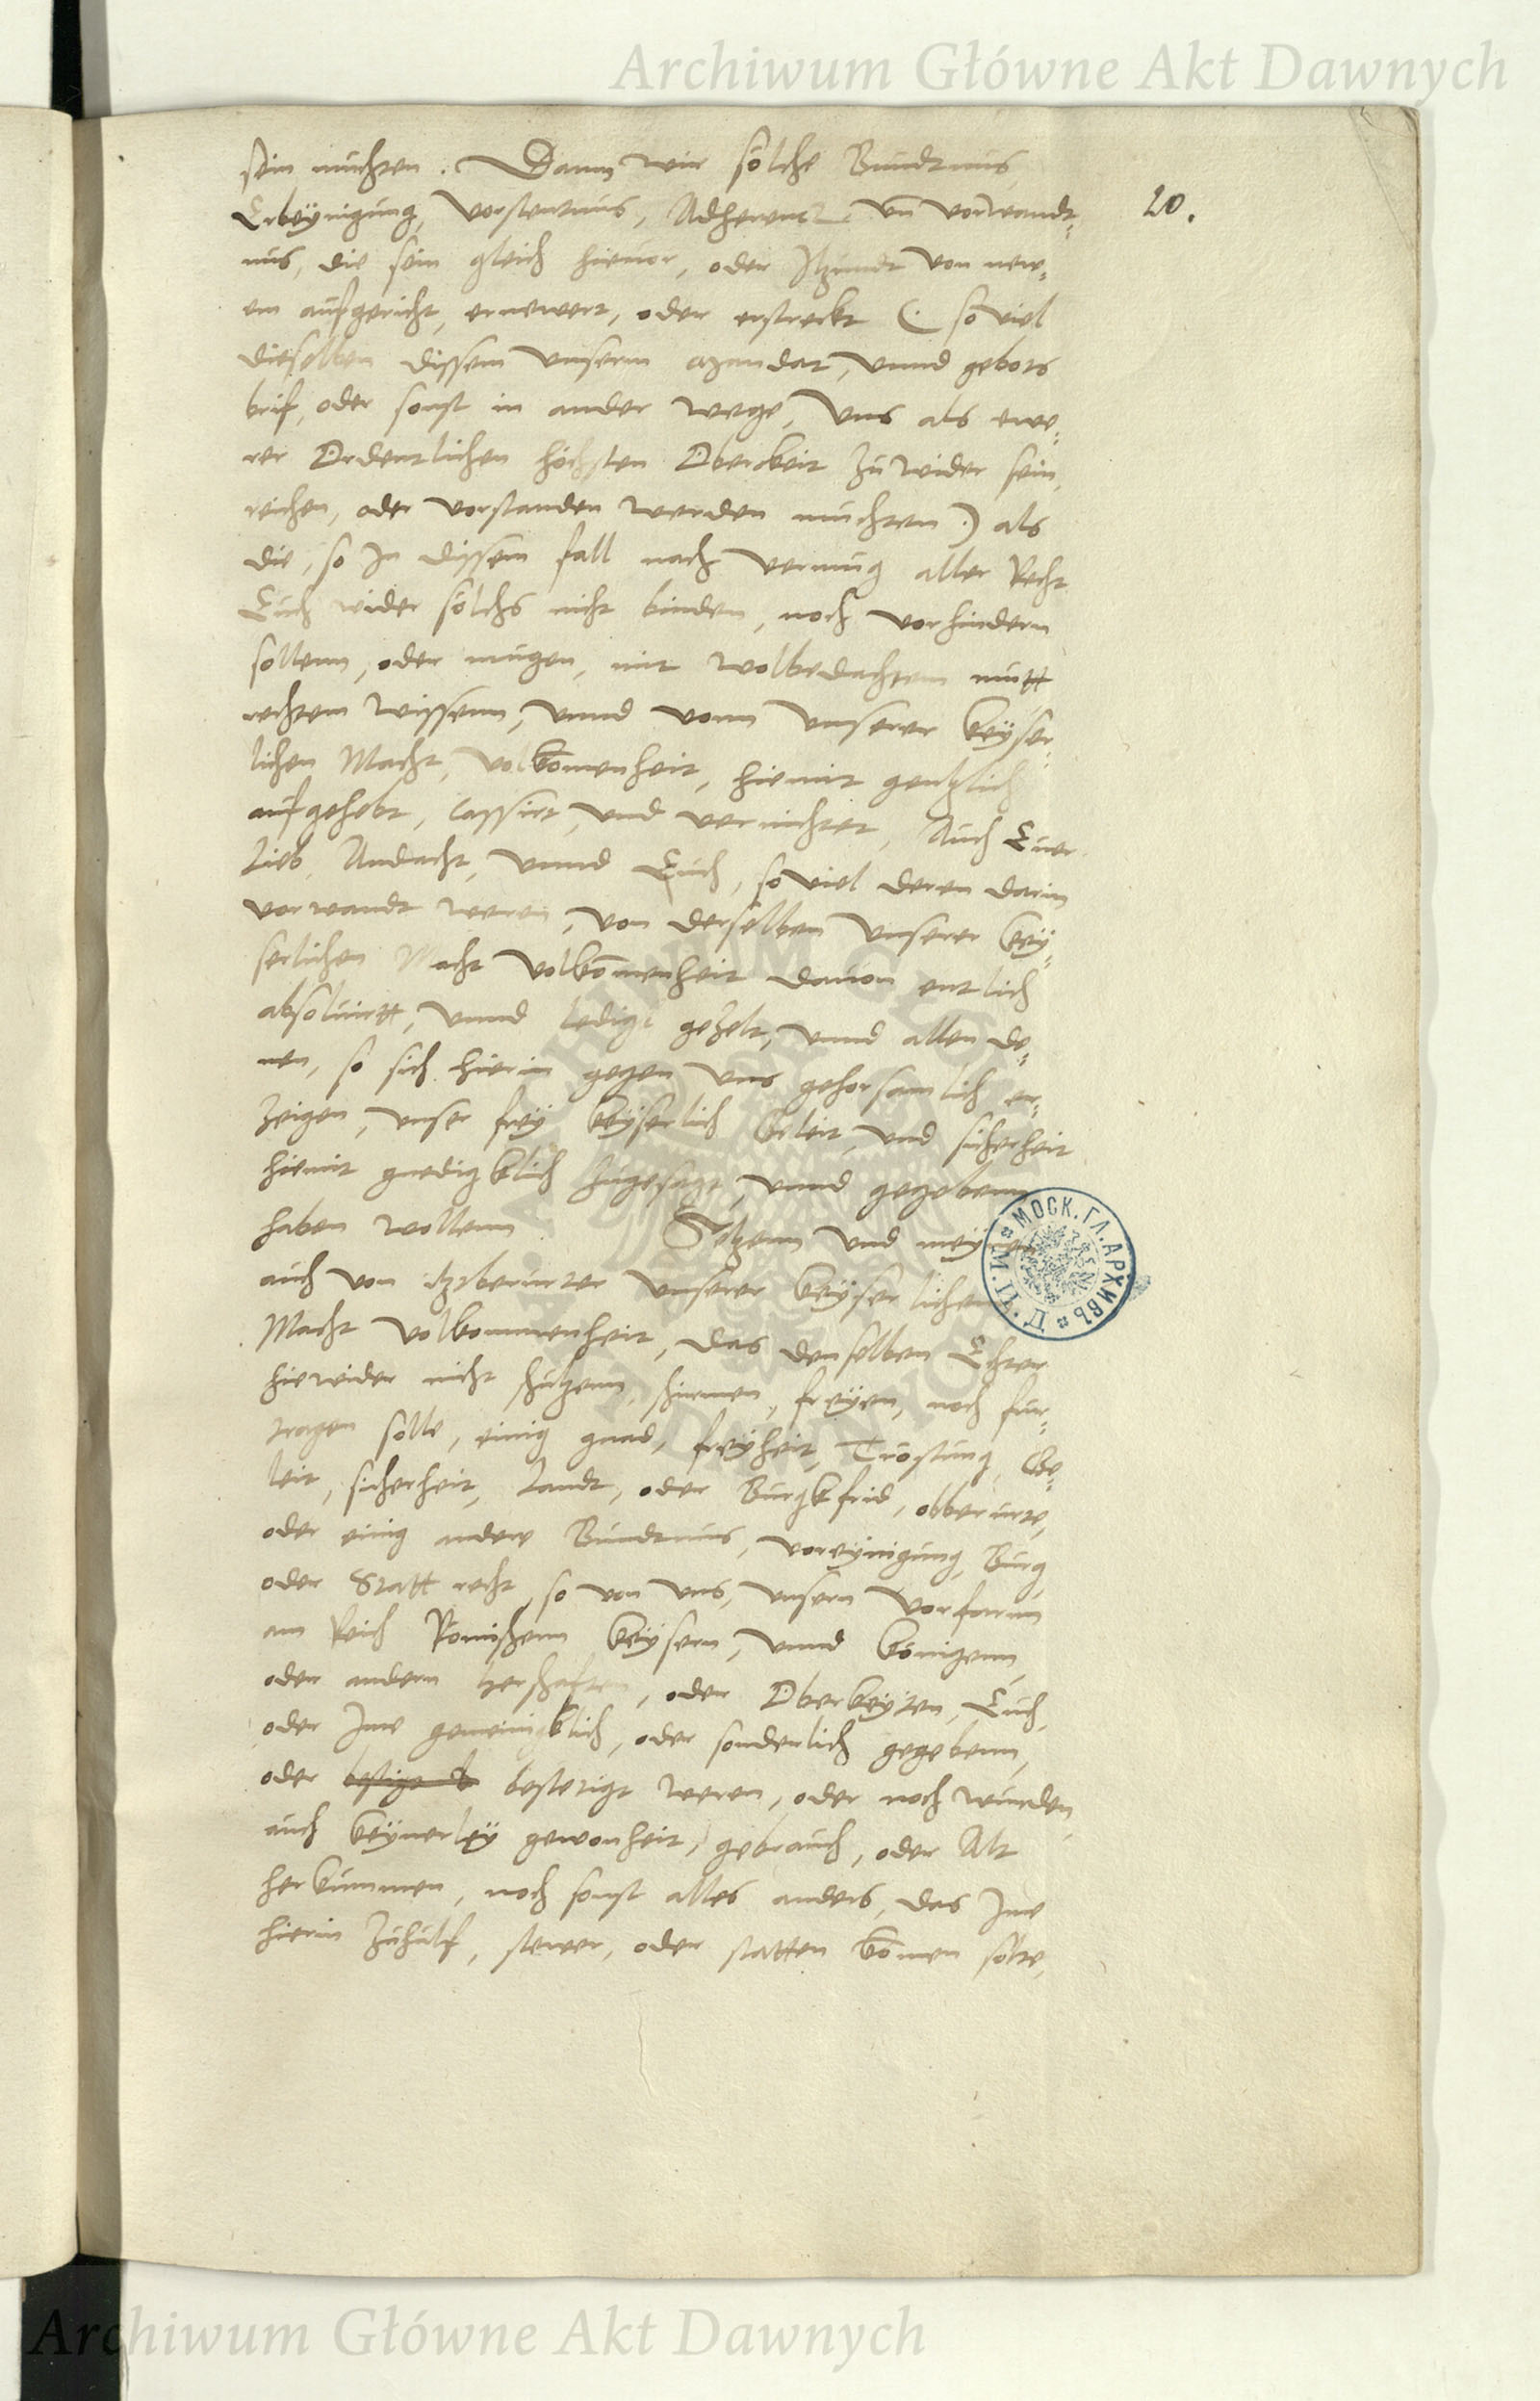 Archiwum Główne Akt Dawnych
20.
sein muchten. Dann wir solche Bundtnus
Erbeynigung, Vorstentnus, Adherentz, vn vorwandt=
nus, die sein gleich hieuor, oder Itzundt von new=
em aufgericht, ernewert, oder erstreckt (: so viel
dieselben dissem vnserm mandat, vnnd gebots
brif, oder sonst in ander wege, Vns als ewe=
rer Ordentlichen höchsten Oberckeit zuwider sein,
reichen, oder vorstanden werden muchten :) als
die, so In dissem fall nach vermug aller Recht
Euch wider solchs nicht binden, noch vorhindern
sollenn, oder mugen, mit wolbedachtem mutt
rechtem wissenn, vnnd vonn vnserer keyser=
lichen Macht, volkomenheit, hiemit gentzlich
aufgehebt, cassirt, vnd vernichtet, Auch Euer
Lieb, Andacht, vnnd Euch, so viel deren darin
vorwandt weren, von derselben vnserer key=
serlichen Macht volkommenheit dauon entlich
absoluirtt, vnnd ledigt gezelt, vnnd allen de=
nen, so sich hierin gegen vns gehorsamlich er=
zeigen, vnser frey keyserlich Geleit, vnd sicherheit
hiemit gnedigklich zugesagt, vnnd gegebenn
haben wollenn. Setzenn vnd meynen
auch von itzberurter vnserer keyserlichen
Macht volkommenheit, das denselben Echter
hiewider nicht schutzenn, schirmen, freyen, noch fur=
tragen solle, einig gnad, freyheit, Trostung, Ge=
leit, sicherheit, Landt, oder Burgkfrid, obberurte,
oder einig andere Bundtnus, voreynigung, Burg,
oder Statt recht, so von vns, vnsern Vorfarnn
am Reich Romischenn keysern, vnnd königenn,
oder andern herschafften, oder Oberkeyten, Euch,
oder Ime gemeinigklich, oder sonderlich gegebenn,
oder bestetigt weren, oder noch wurden,
auch keynerley gewonheit, gebrauch, oder Alt
herkummen, noch sonst alles anders, das Ime
hierin zuhulf, stewer, oder statten komen solte,
МОСК. ГЛ. АРХИВЪ
М. И. Д.
Archiwum Główne Akt Dawnych